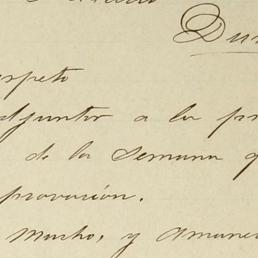 Du
speto
djuntar a la pr
de la semana q
provacion.
Mucho, y amane